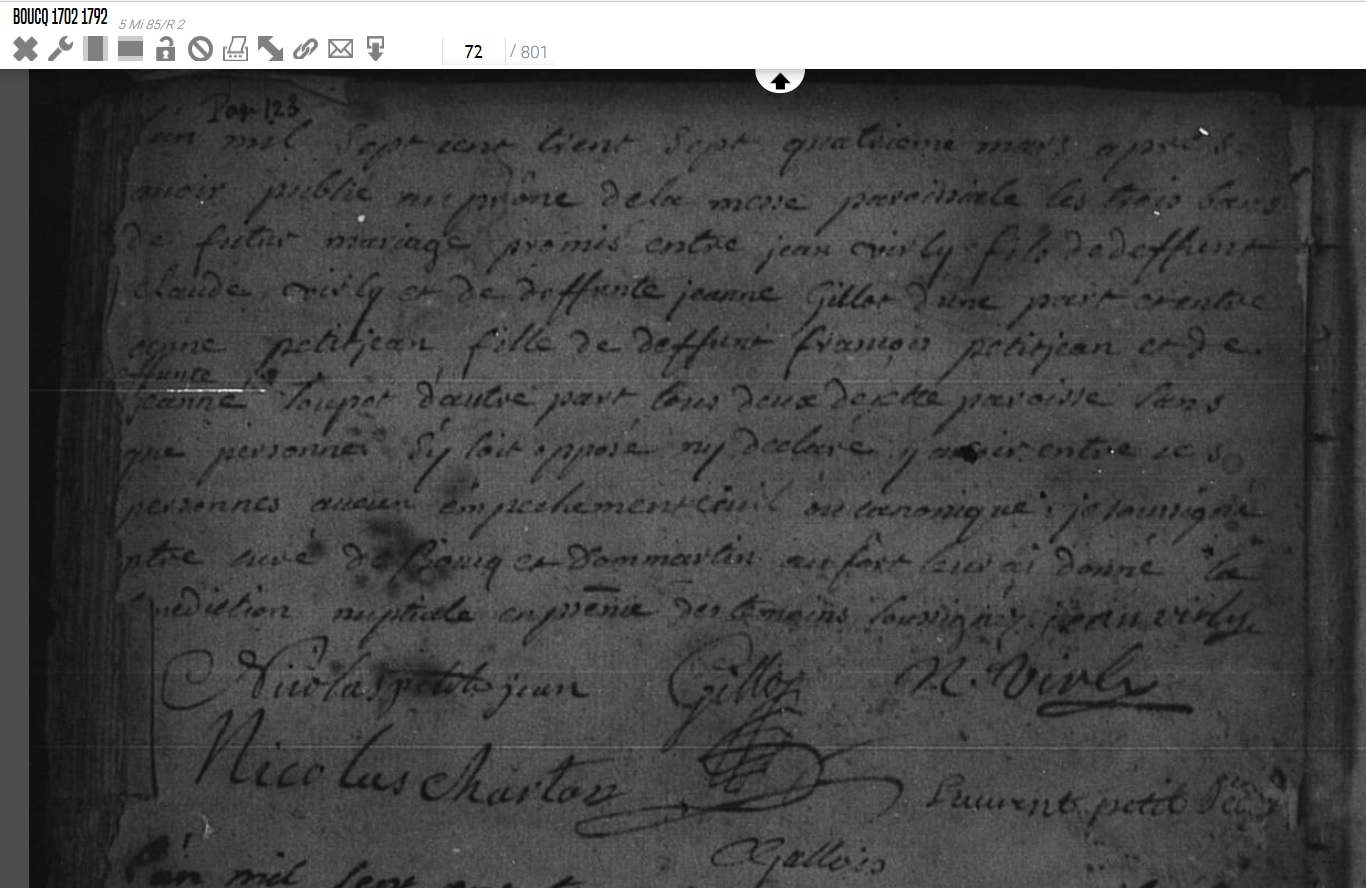 BOUCQ 1702 1792 5 Mi 85/R 2
72 / 801
Pag 123
l'an mil sept cent trent sept quatrieme mars apres
avoir publié au prône de la messe paroissiale les trois bans
de futur mariage promis entre jean virly fils de deffunt
claude virly et de deffunte jeanne Gillot d'une part et entre
anne petitjean fille de deffunt francois petitjean et de
ffunte
jeanne loupot d'autre part tous deux de cette paroisse sans
que personne s'y soit opposé ny declaré y avoir entre ces
personnes aucun empechement civil ou canonique je soussigné
ptre curé de Boucq et Dommartin au fort leur ai donné la
nediction nuptiale en pñce des temoins soussignez. jean virly
Nicolas petit jean Gillot N. Virly
Nicolas charton Laurent petit
CGallois
L'an mil sept